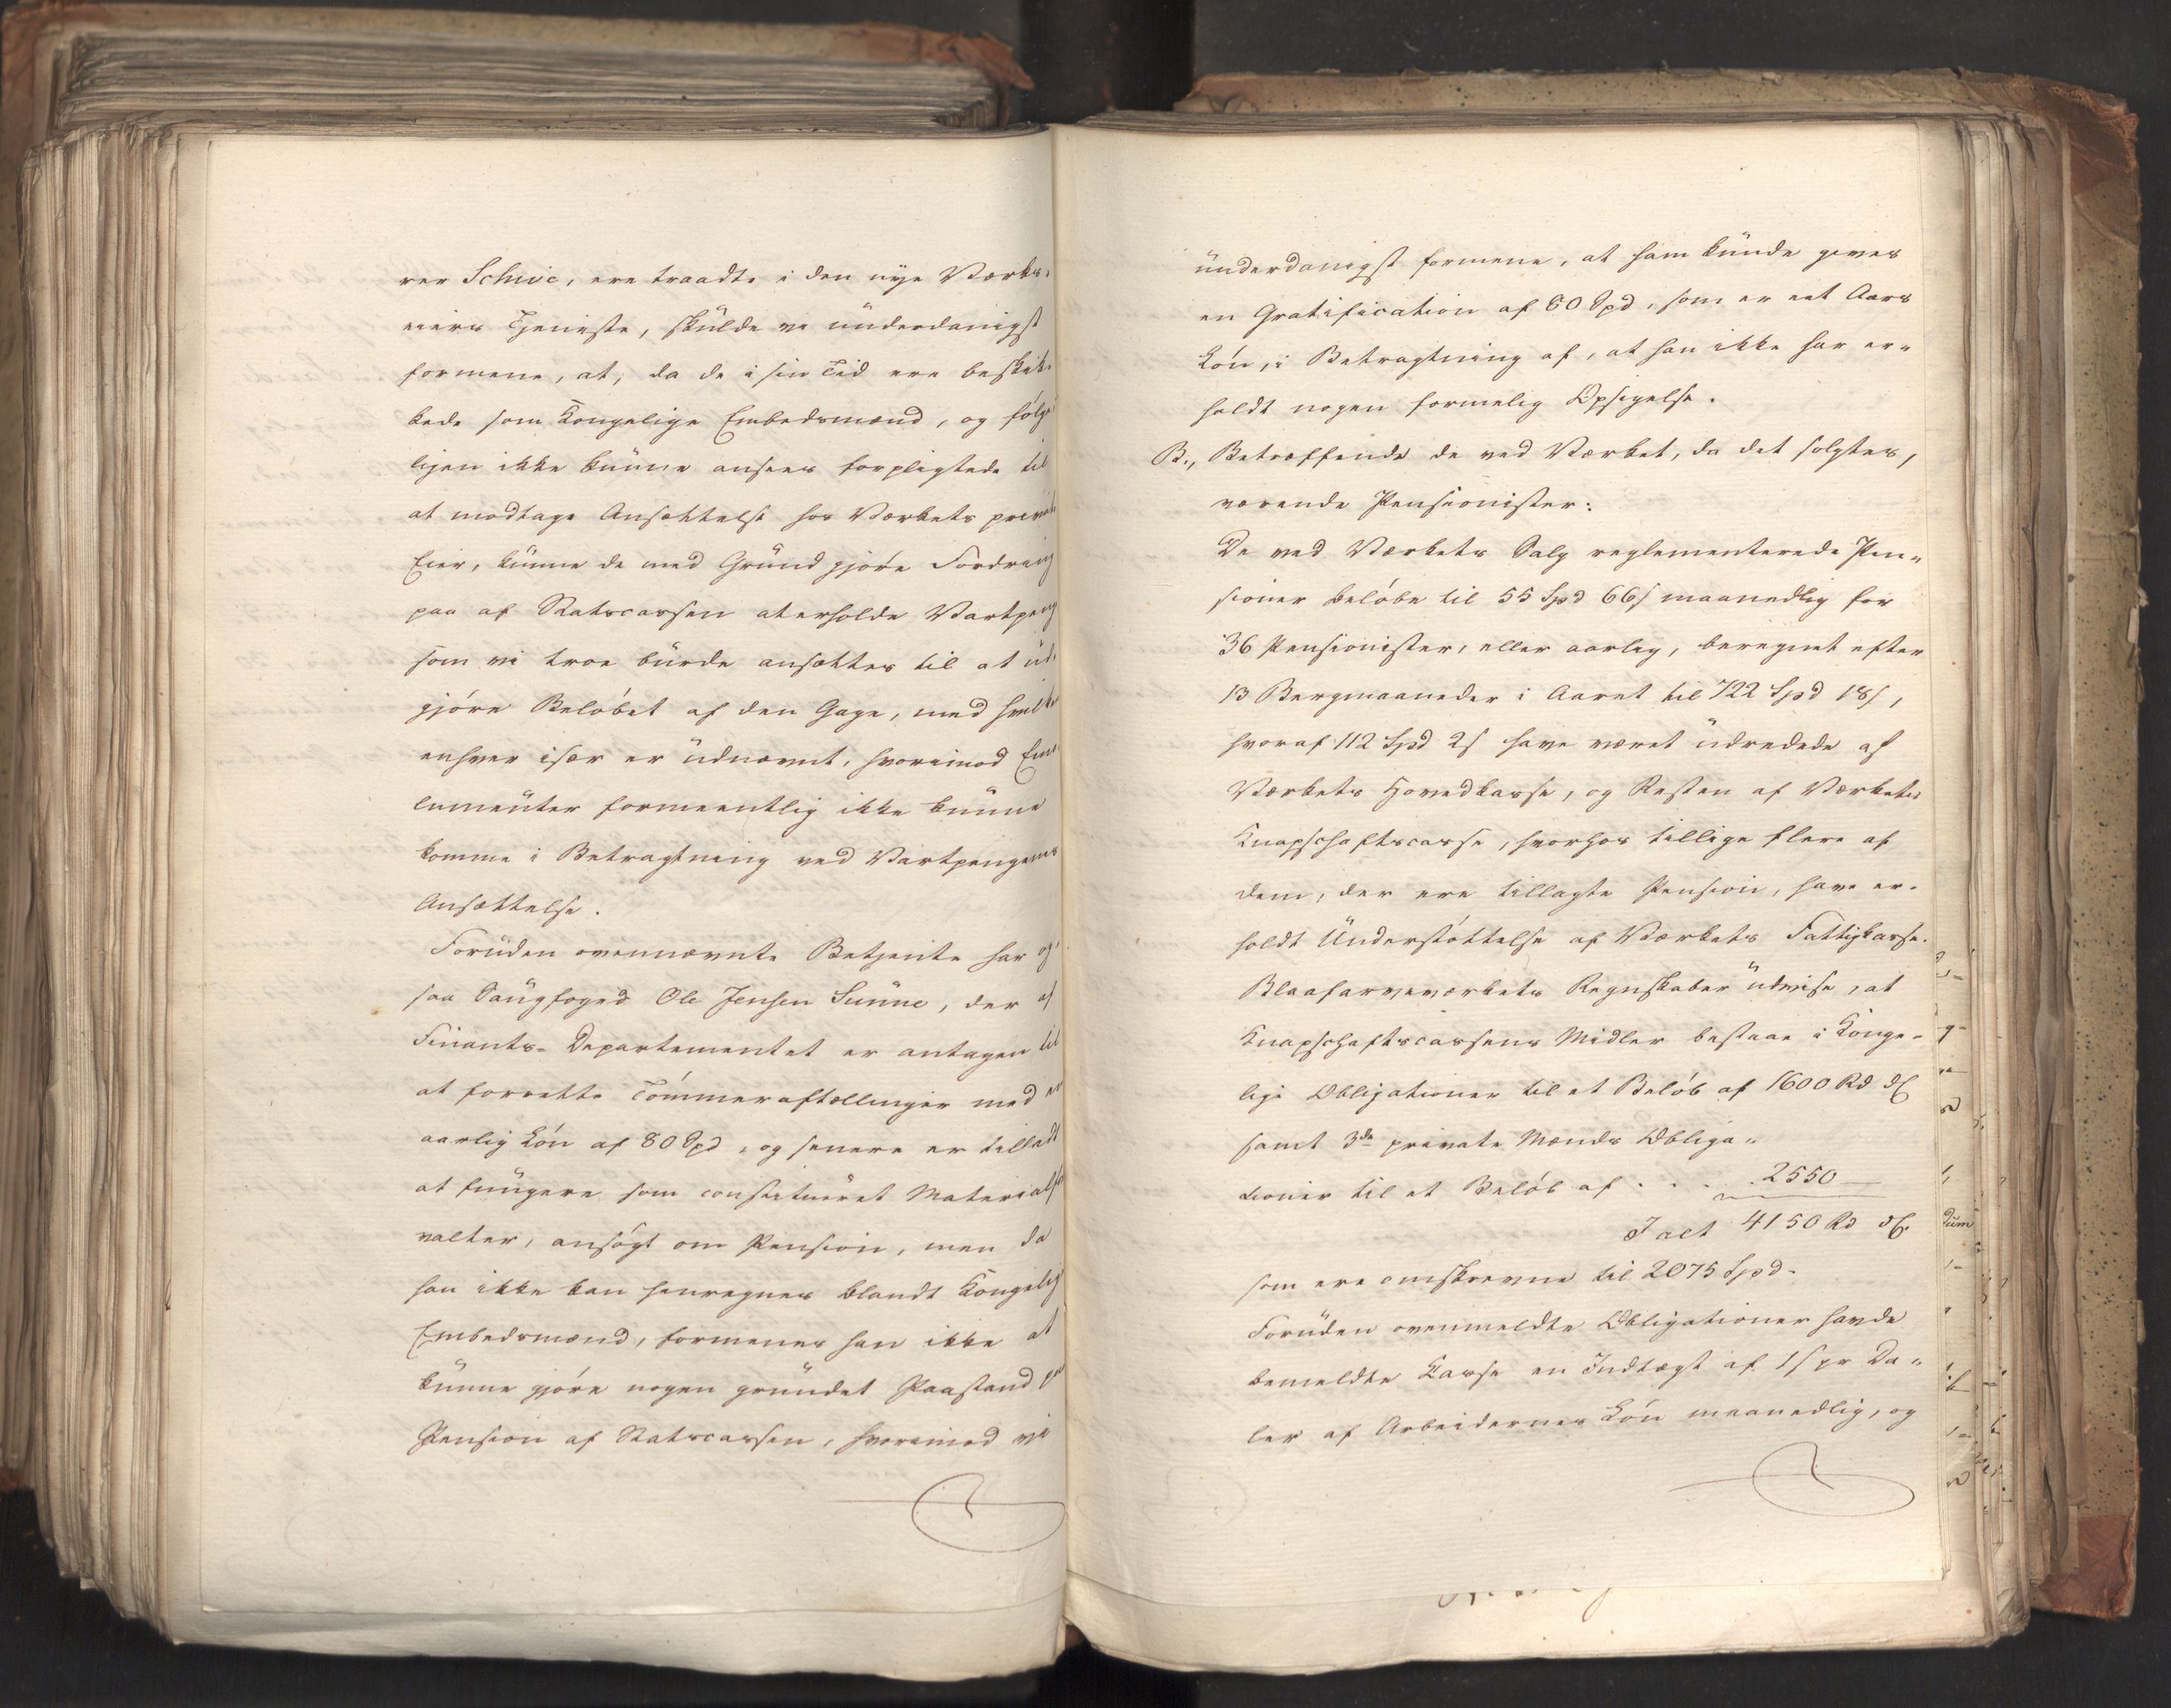 rer Schive, ere traadte i den nye Værks-
eiers Tjeneste, skulde vi underdanigst
formene, at, da de i sin Tid ere beskik-
kede som Kongelige Embedsmænd, og følge
ligen ikke kunne ansees forpligtede til
at modtage Ansættelse hos Værkets private
Eier, kunne de med Grund gjøre Fordring
paa af Statscassen at erholde Vartpeng
som vi troe burde ansættes til at ud-
gjøre Beløbet af den Gage, med hvilken
enhver især er udnævnt, hvorimod Emo-
lumenter formeentlig ikke kunne
komme i Betragtning ved Vartpengenes
Ansættelse.
Foruden ovennævnte Betjente har og-
saa Saugfoged Ole Jensen Sunne, der af
Finants-Departementet er antagen til
at forrette Tømmeraftællinger med en
aarlig Løn af 80 Spd, og senere er tilladt
at fungere som constitueret Materialfor
valter, ansøgt om Pension, men da
han ikke kan henregnes blandt Kongelige
Embedsmænd, formenes han ikke at
kunne gjøre nogen grundet Paastand paa
Pension af Statscassen, hvorimod vi
underdanigst formene, at ham kunde gives
en Gratification af 80 Spd, som er eet Aars
Løn, i Betragtning af, at han ikke har er-
holdt nogen formelig Opsigelse.
B., Betræffende de ved Værket, da det solgtes,
værende Pensionister:
De ved Værkets Salg reglementerede Pen-
sioner beløbe til 55 Spd 66 s maanedlig for
36 Pensionister, eller aarlig, beregnet efter
13 Bergmaaneder i Aaret til 722 Spd 18 s,
hvoraf 112 Spd 2 s have været udredede af
Værkets Hovedkasse, og Resten af Værkets
Knapschaftscasse, hvorhos tillige flere af
dem, der ere tillagte Pension, have er-
holdt Understøttelse af Værkets Fattigkasse.
Blaafarveværkets Regnskaber udvise, at
Knapschaftscassens Midler bestaae i Konge-
lige Obligationer til et Beløb af 1600 Rd dC
samt 3de private Mænds Obliga-
tioner til et Beløb af . . . . 2550 —
I alt 4150 Rd dC.
som ere omskrevne til 2075 Spd.
Foruden ovenmeldte Obligationer havde
bemeldte Kasse en Indtægt af 1 s pr Da-
ler af Arbeidernes Løn maanedlig, og